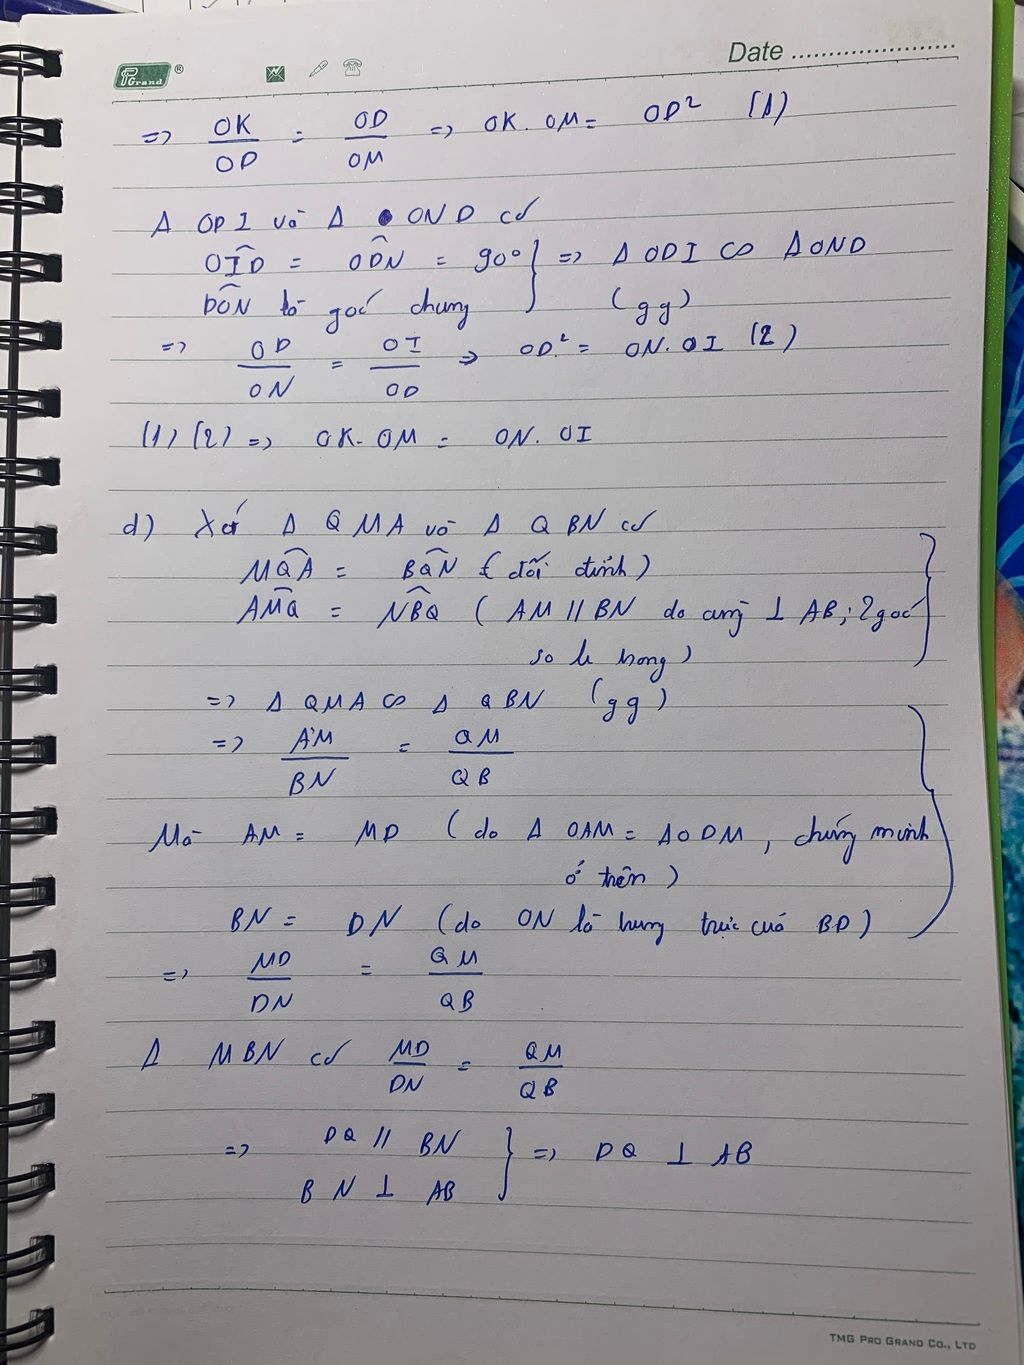 PGrand ®
Date
=> OK/OD = OD/OM => OK. OM = OD² (1)
Δ ODI và Δ OND có
OID = ODN = 90° => Δ ODI ∽ Δ OND
DON là góc chung (gg)
=> OD/ON = OI/OD => OD² = ON. OI (2)
(1) (2) => OK. OM = ON. OI
d) Xét Δ QMA và Δ QBN có
MQA = BQN (đối đỉnh)
AMQ = NBQ ( AM // BN do cùng ⊥ AB; 2 góc
so le trong)
=> Δ QMA ∽ Δ QBN (gg)
=> AM/BN = QM/QB
Mà AM = MD (do Δ OAM = Δ ODM, chứng minh
ở trên)
BN = DN (do ON là trung trực của BD)
=> MD/DN = QM/QB
Δ MBN có MD/DN = QM/QB
=> DQ // BN => DQ ⊥ AB
BN ⊥ AB
TMG PRO GRAND CO., LTD